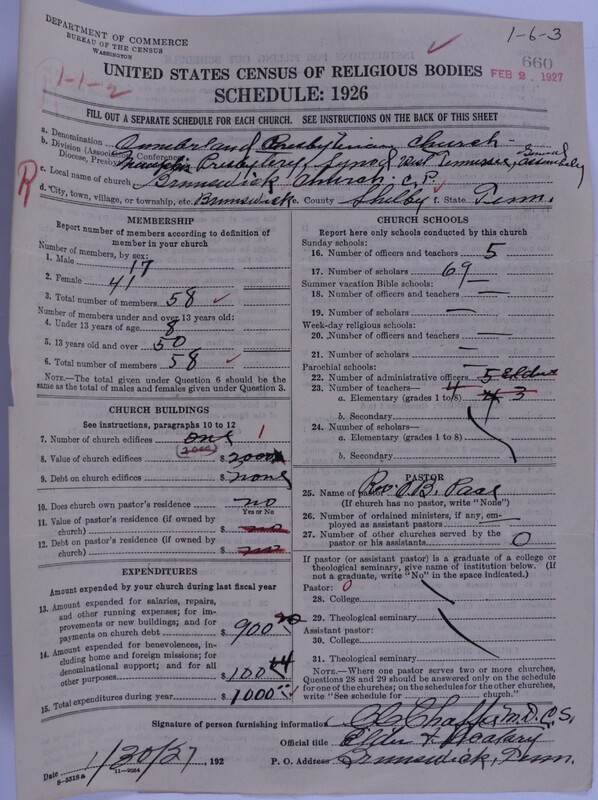 DEPARTMENT OF COMMERCE
BUREAU OF THE CENSUS
WASHINGTON
1-6-3
660
FEB 2 1927
1-1-2
UNITED STATES CENSUS OF RELIGIOUS BODIES
SCHEDULE: 1926
FILL OUT A SEPARATE SCHEDULE FOR EACH CHURCH. SEE INSTRUCTIONS ON THE BACK OF THIS SHEET
a. Denomination Cumberland Presbyterian Church
b. Division (Association, Conference, Diocese, Presbytery Presbytery, Synod West Tennessee, General Assembly
c. Local name of church Brunswick Church C. P.
d. City, town, village, or township, etc. Brunswick e. County Shelby f. State Tenn.
R
MEMBERSHIP
Report number of members according to definition of
member in your church
Number of members, by sex:
1. Male 17
2. Female 41
3. Total number of members 58
Number of members under and over 13 years old:
4. Under 13 years of age 8
5. 13 years old and over 50
6. Total number of members 58
NOTE.—The total given under Question 6 should be the
same as the total of males and females given under Question 3.
CHURCH BUILDINGS
See instructions, paragraphs 10 to 12
7. Number of church edifices one 1
2000
8. Value of church edifices $ 2000
9. Debt on church edifices $ none
10. Does church own pastor's residence no
Yes or No
11. Value of pastor's residence (if owned by
church) $ no
12. Debt on pastor's residence (if owned by
church) $ no
EXPENDITURES
Amount expended by your church during last fiscal year
13. Amount expended for salaries, repairs,
and other running expenses; for im-
provements or new buildings; and for
payments on church debt $ 900
14. Amount expended for benevolences, in-
cluding home and foreign missions; for
denominational support; and for all
other purposes $ 100
15. Total expenditures during year $ 1000
CHURCH SCHOOLS
Report here only schools conducted by this church
Sunday schools:
16. Number of officers and teachers 5
17. Number of scholars 69
Summer vacation Bible schools:
18. Number of officers and teachers —
19. Number of scholars —
Week-day religious schools:
20. Number of officers and teachers —
21. Number of scholars —
Parochial schools:
22. Number of administrative officers 5 Elders
23. Number of teachers— 4
a. Elementary (grades 1 to 8) 4 3
b. Secondary
24. Number of scholars—
a. Elementary (grades 1 to 8)
b. Secondary
PASTOR
25. Name of pastor Rev. B.
(If church has no pastor, write "None")
26. Number of ordained ministers, if any, em-
ployed as assistant pastors —
27. Number of other churches served by the
pastor or his assistants 0
If pastor (or assistant pastor) is a graduate of a college or
theological seminary, give name of institution below. (If
not a graduate, write "No" in the space indicated.)
Pastor: 0
28. College
29. Theological seminary
Assistant pastor:
30. College
31. Theological seminary
NOTE.—Where one pastor serves two or more churches,
Questions 28 and 29 should be answered only on the schedule
for one of the churches; on the schedules for the other churches,
write "See schedule for church."
Signature of person furnishing information M.D. C.S.
Official title Elder &
Date 1/30/27, 192 P. O. Address Brunswick, Tenn.
8-5318a 11-9084